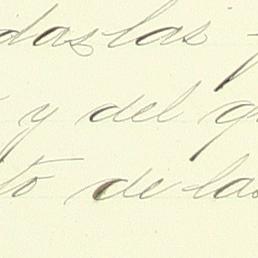 das las
y del
to de las